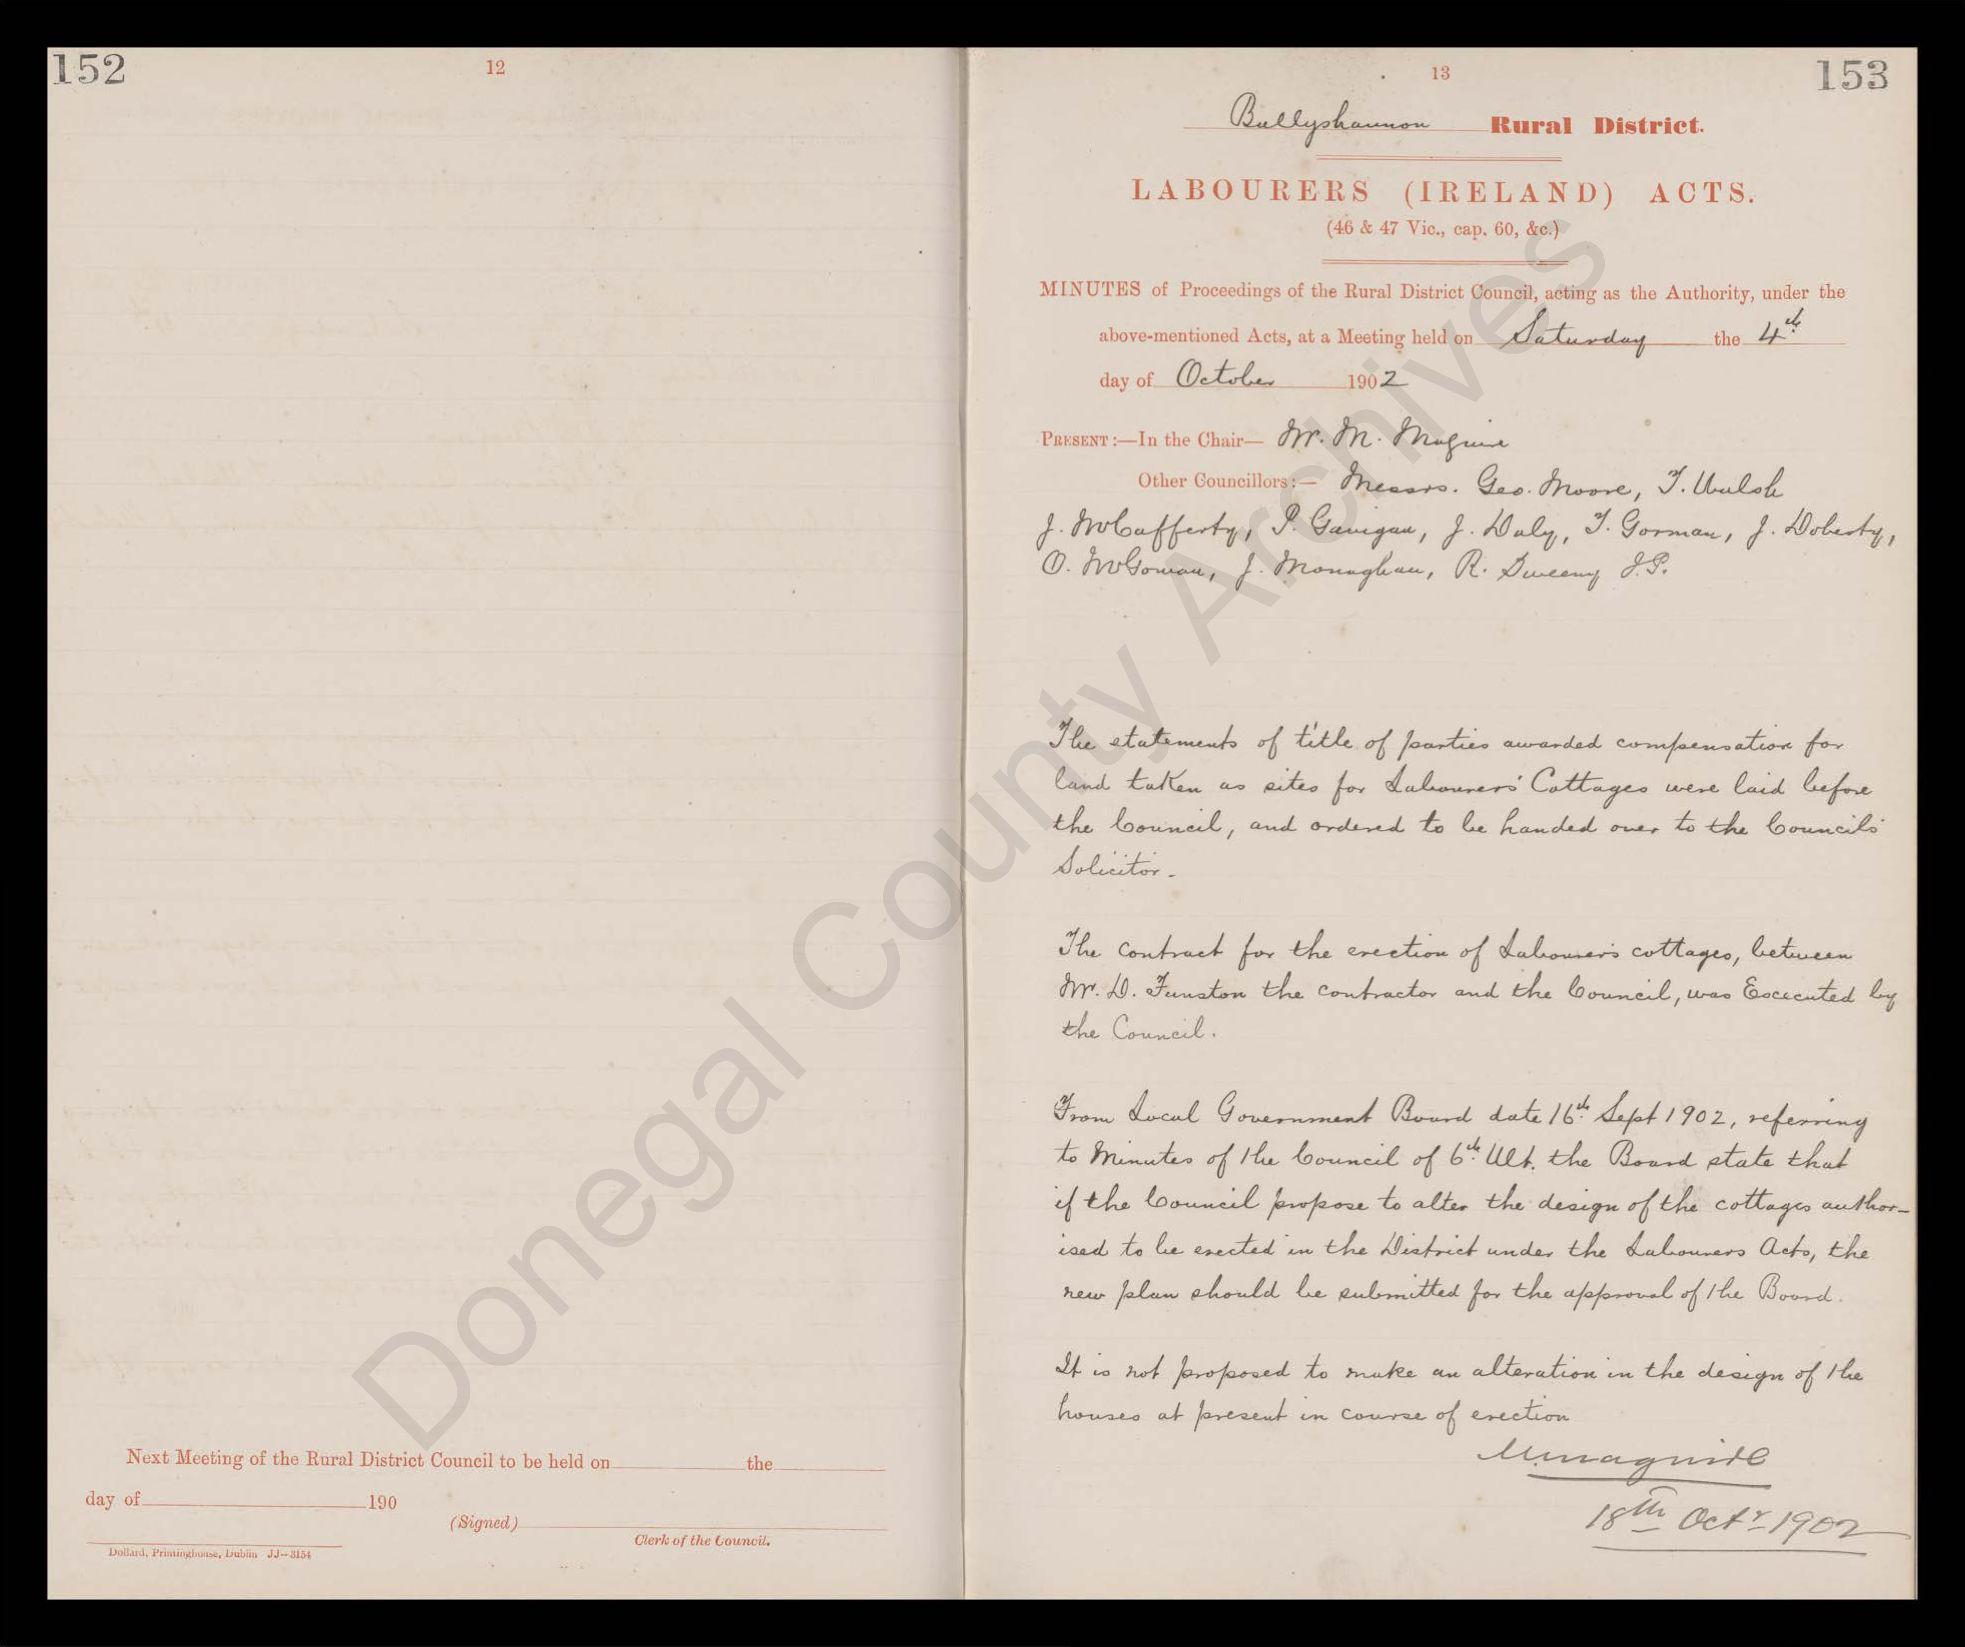 152
12
Next Meeting of the Rural District Council to be held on the
day of 190
(Signed)
Clerk of the Council.
Dollard, Printinghouse, Dublin JJ—3154
13
153
Ballyshannon Rural District.
LABOURERS (IRELAND) ACTS.
(46 & 47 Vic., cap. 60, &c.)
MINUTES of Proceedings of the Rural District Council, acting as the Authority, under the
above-mentioned Acts, at a Meeting held on Saturday the 4th
day of October 1902
PRESENT:—In the Chair— Mr. M. Maguire
Other Councillors:— Messrs. Geo. Moore, T. Walsh
J. McCafferty, P. Gavigan, J. Daly, T. Gorman, J. Doherty,
O. McGowan, J. Monaghan, R. Sweeny J.P.
The statements of title of parties awarded compensation for
land taken as sites for Labourers' Cottages were laid before
the Council, and ordered to be handed over to the Councils'
Solicitor.
The contract for the erection of Labourers cottages, between
Mr. D. Funston the contractor and the Council, was Executed by
the Council.
From Local Government Board date 16th Sept 1902, referring
to Minutes of the Council of 6th Ult. the Board state that
if the Council propose to alter the design of the cottages author-
ised to be erected in the District under the Labourers Acts, the
new plan should be submitted for the approval of the Board.
It is not proposed to make an alteration in the design of the
houses at present in course of erection
M Maguire
18th Octr 1902
Donegal County Archives